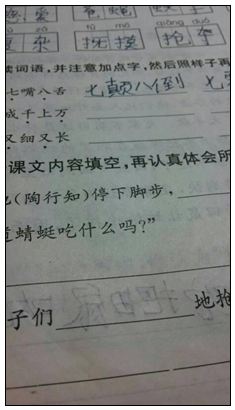 fǔ mō qiǎng duó
抚摸 抢夺
读词语,并注意加点字,然后照样子再
七嘴八舌 七颠八倒 七
成千上万
又细又长
课文内容填空,再认真体会所
(陶行知)停下脚步,
道蜻蜓吃什么吗?”
子们 地抢